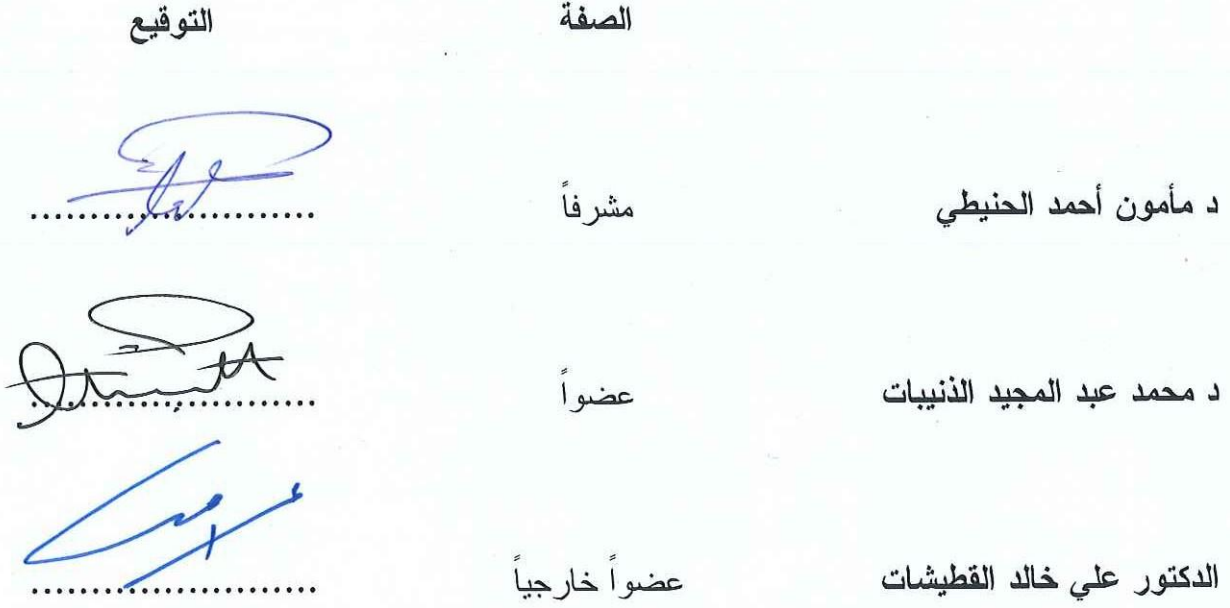 الصفة التوقيع
د مأمون أحمد الحنيطي مشرفاً ........................
د محمد عبد المجيد الذنيبات عضواً ........................
الدكتور علي خالد القطيشات عضواً خارجياً ........................